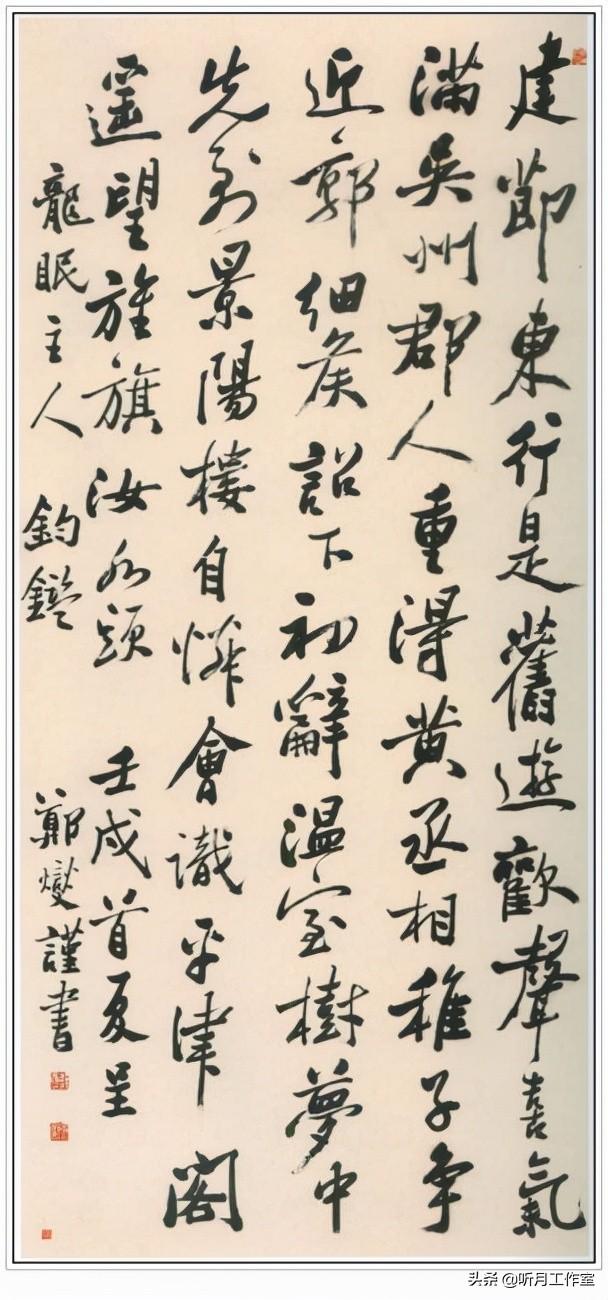 建節東行是舊遊歡聲喜氣
滿吳州郡人重得黃丞相稚子争
近郭細侯詔下初辭温室樹夢中
先到景陽樓自憐會識平津閣
遥望旌旗汝水頭 壬戌首夏呈
龍眠主人 鈞鑒 鄭燮謹書
头条 @听月工作室